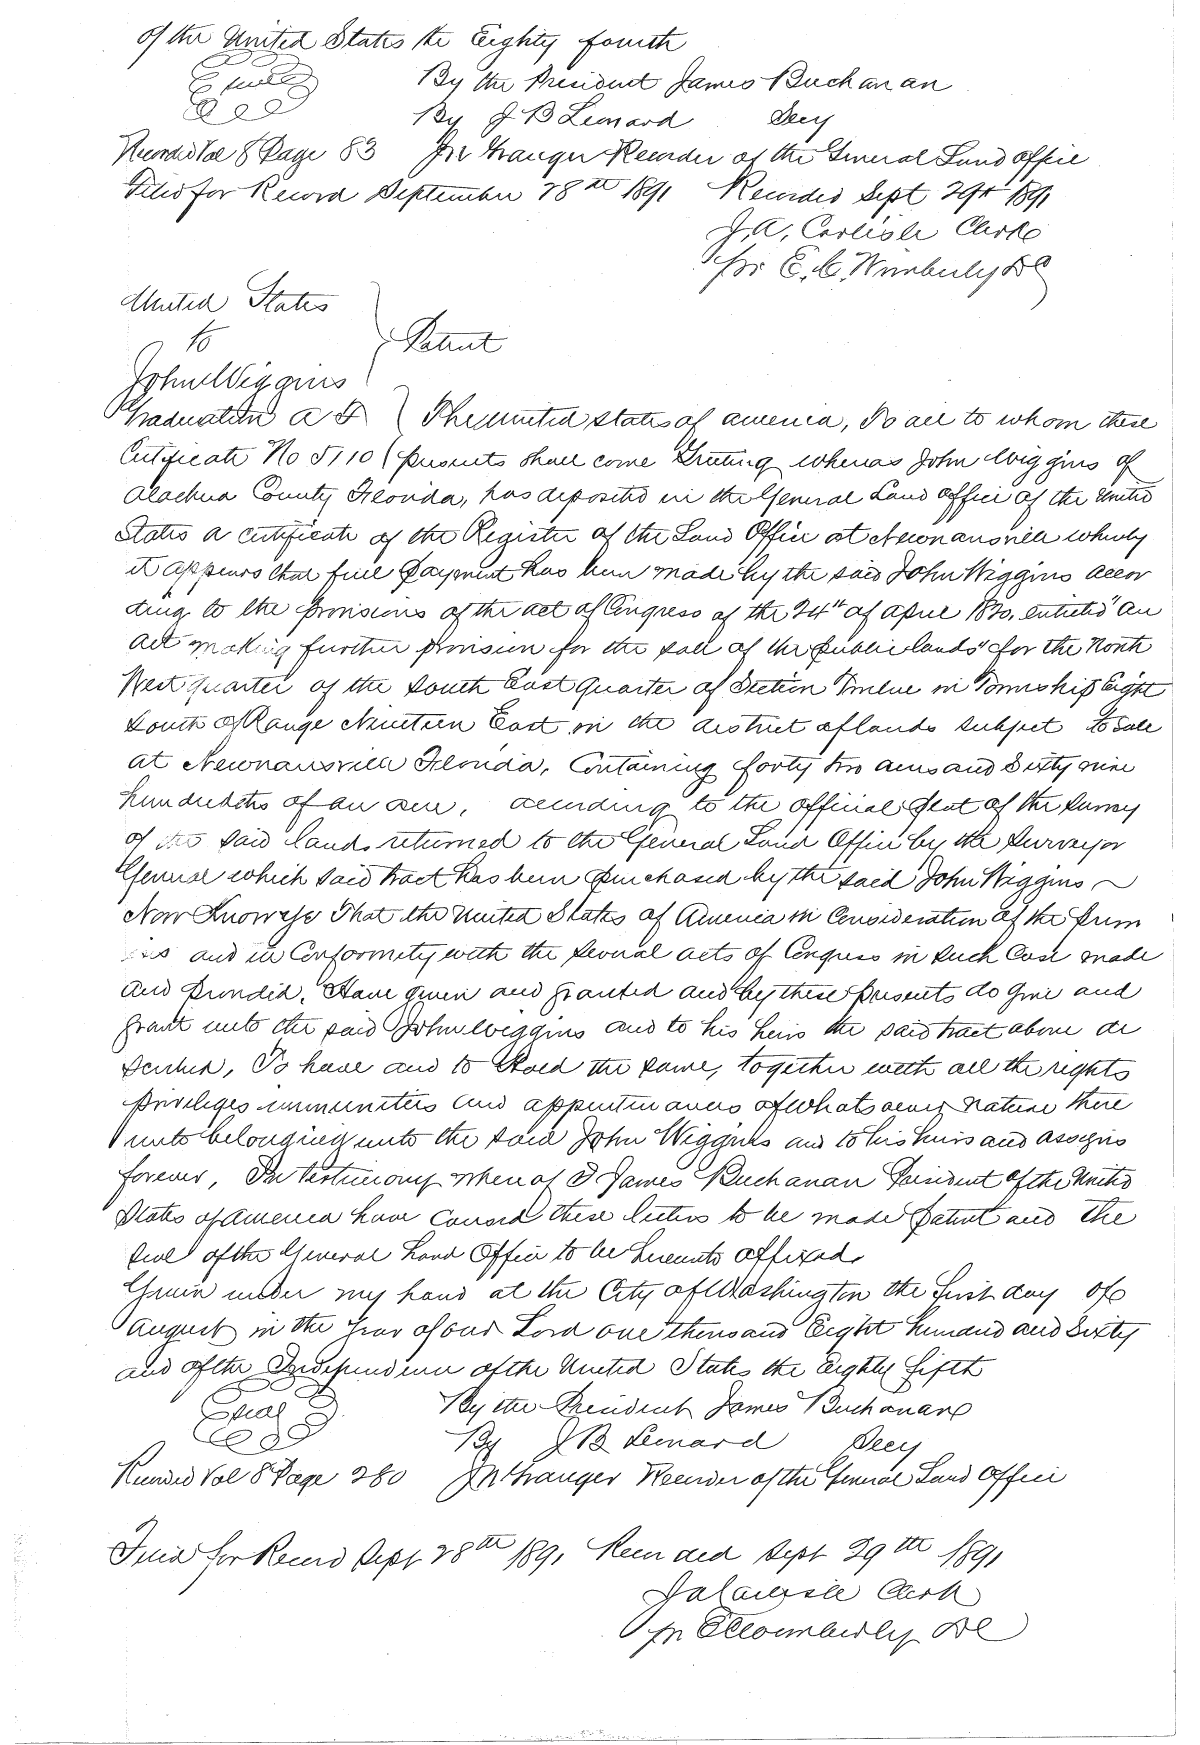 of the United States the Eighty fourth
Seal
By the President James Buchanan
By J B Leonard Secy
Recorded Vol 8 Page 83 J N Granger Recorder of the General Land Office
Filed for Record September 28th 1891 Recorded Sept 29th 1891
J. A. Carlisle Clerk
for E. C. Wimberly D C
United States
to
Patent
John Wiggins
Graduation a F The United States of america, To all to whom these
Certificate No 5110 presents shall come Greeting whereas John Wiggins of
Alachua County Florida, has deposited in the General Land Office of the United
States a certificate of the Register of the Land Office at Newnansville whereby
it appears that full payment has been made by the said John Wiggins accor
ding to the provisions of the act of Congress of the 24th of April 1820, entitled "An
act making further provision for the sale of the public lands" for the North
West quarter of the South East quarter of Section Twelve in Township Eight
South of Range Nineteen East in the district of lands subject to Sale
at Newnansville Florida, Containing forty two acres and Sixty nine
hundredths of an acre, according to the official plat of the survey
of the said lands returned to the General Land Office by the Surveyor
General which said tract has been purchased by the said John Wiggins
Now Know ye That the United States of America in Consideration of the prem
ises and in Conformity with the several acts of Congress in such Case made
and provided, Have given and granted and by these presents do give and
grant unto the said John Wiggins and to his heirs the said tract above de
scribed, To have and to Hold the same, together with all the rights
privileges immunities and appurtenances of whatsoever nature there
unto belonging unto the said John Wiggins and to his heirs and assigns
forever, In testimony whereof I James Buchanan President of the United
States of America have caused these letters to be made patent and the
seal of the General Land Office to be hereunto affixed.
Given under my hand at the City of Washington the first day of
August in the Year of our Lord one thousand Eight hundred and Sixty
and of the Independence of the United States the Eighty fifth
Seal
By the President James Buchanan
By J B Leonard Secy
Recorded Vol 8 Page 280 J N Granger Recorder of the General Land Office
Filed for Record Sept 28th 1891 Recorded Sept 29th 1891
J A Carlisle Clerk
for E C Wimberly D C